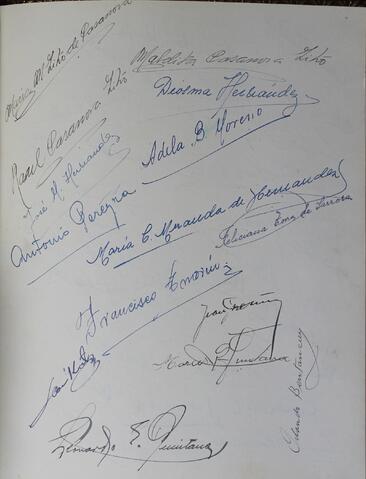 María M. Zitó de Casanova
Mafalda Casanova Zitó
Raul Casanova Zitó
Diosma Hernández
José M. Hernández
Adela B. Moreno
Antonio Pereyra
María C. Miranda de Hernandez
Feliciana de
Francisco
Juan
María Quintana
Orlando Bentancur
Bernardo E. Quintana